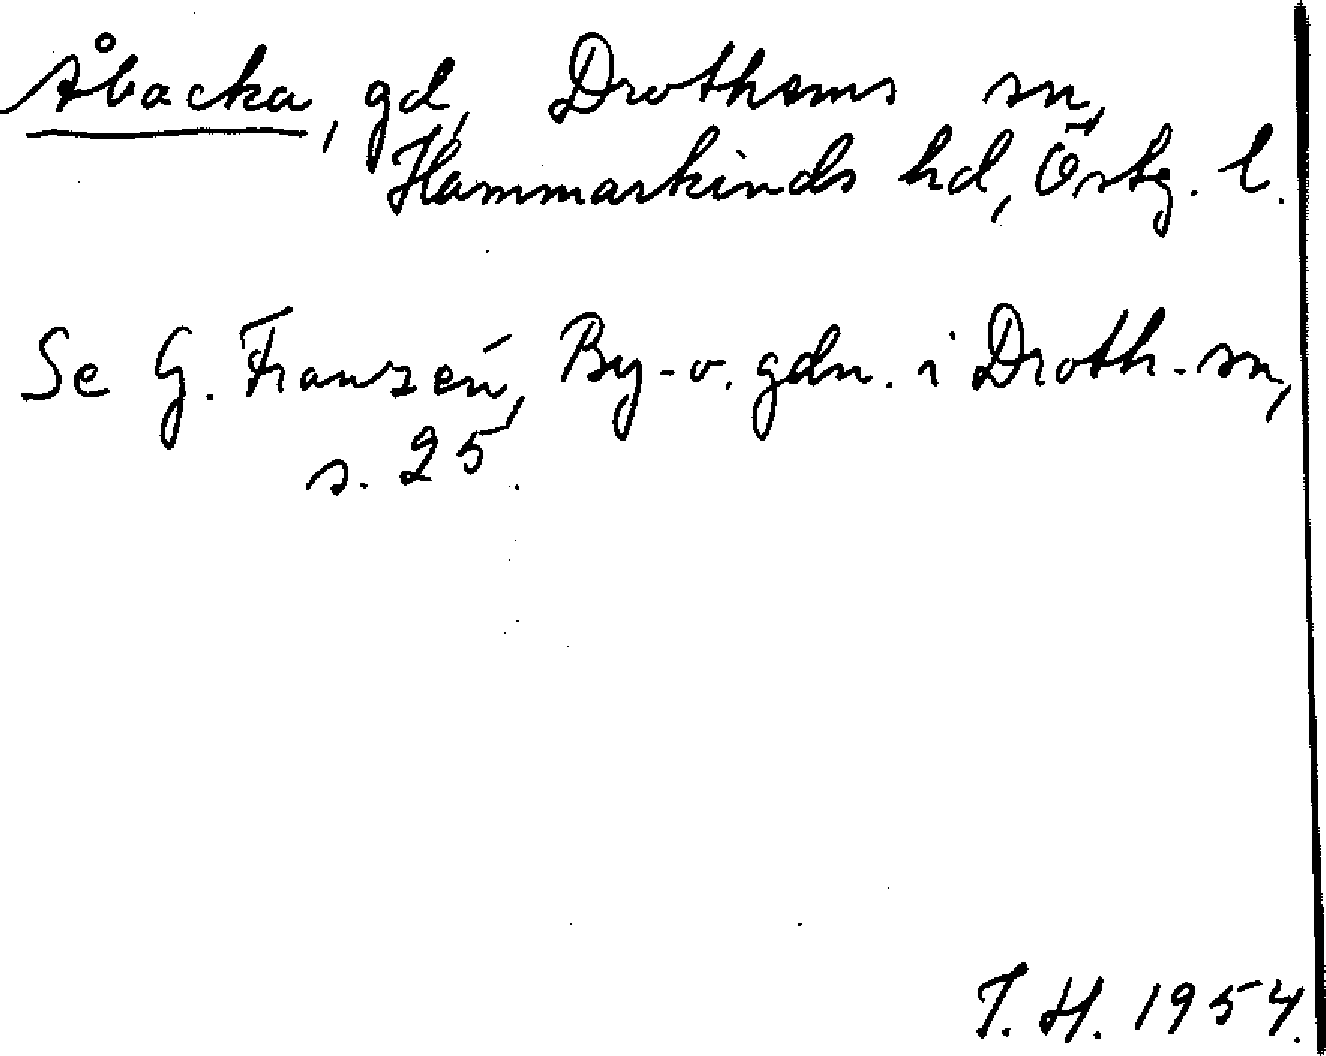 Åbacka, gd, Drothems sn,
Hammarkinds hd, Östg. l.
Se G. Franzén, By- o. gdn. i Droth. sn,
s. 25.
T. H. 1954.